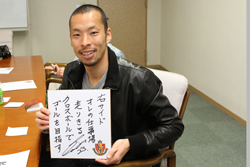 右サイド
オレの仕事場
走りきる!
クロスボールで
ゴールを目指す